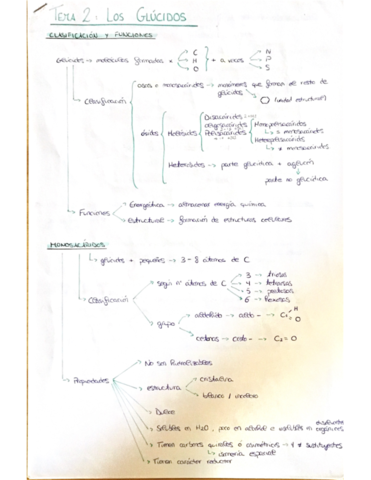 TEMA 2. LOS GLÚCIDOS
CLASIFICACIÓN Y FUNCIONES:
Glúcidos → moléculas formadas + C H O + a veces N P S
Clasificación
osas o monosacáridos → monómeros que forman el resto de glúcidos
(unidad estructural)
ósidos
Holósidos
Disacáridos
oligosacáridos
Polisacáridos
Homopolisacáridos
↳ = monosacáridos
Heteropolisacáridos
↳ ≠ monosacáridos
Heterósidos → parte glucídica + aglucón
↳ parte no glucídica
Funciones
Energética → almacenar energía química
estructural → formación de estructuras celulares
MONOSACÁRIDOS:
↳ glúcidos + pequeños → 3 - 8 átomos de C
Clasificación
según nº átomos de C
3 → triosas
4 → tetrosas
5 → pentosas
6 → hexosas
grupo
aldehído → aldo- → C H O
cetonas → ceto- → C = O
Propiedades
No son hidrolizables
estructura
cristalina
blanco / incoloro
Dulce
Solubles en H₂O, pero en alcohol e insolubles en
orgánicos
Tienen carbonos quirales o asimétricos → 4 ≠ sustituyentes
↳ isomería espacial
Tienen carácter reductor